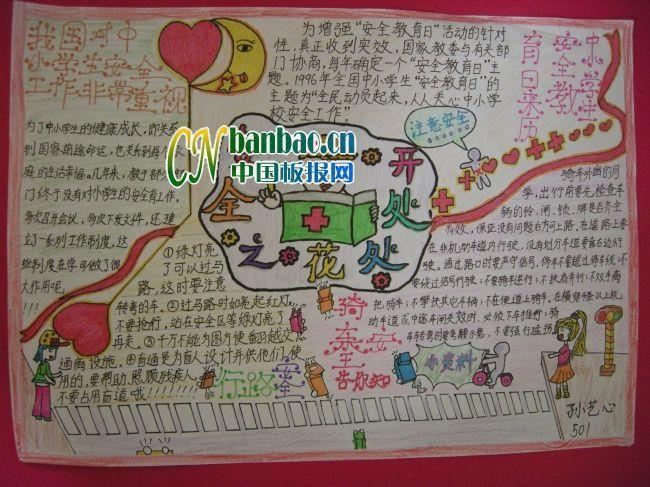 我国对中
小学生安全
工作非常重视
为了中小学生的健康成长，即关系
到国家前途命运，也关系到每个家
庭的生活幸福。几年来，教育部专
门终于没有对小学生的安全育工作，
多次召开会议，多次下发文件，还建
立了一系列工作制度，这
些制度在学可做了很
大作用呢，
!!!
为增强“安全教育日”活动的针对
性，真正收到实效，国家教委与有关部
门协商，每年确定一个“安全教育日”主
题。1996年全国中小学生“安全教育日”的
主题为“全民动员起来，人人关心中小学
校安全工作”。
中小学生
安全教
育日来历
CN banbao.cn
中国板报网
注意安全
安全之花处处开
①绿灯亮
了可以过马
路。这时要注意
转弯的车。②过马路时如亮起红灯，
不要抢行，站在安全区等绿灯亮了
再走。③千万不能为图方便翻越交
通商设施。④盲道是为盲人设计并供他们使
用的，要帮助、照顾残疾人，
不要占用盲道哦!!!!!!!!
行路安全
骑车安全
告你知
骑车外出的同
学，出行前要先检查车
辆的铃、闸、锁、牌是否齐全
有效，保证没有问题右方可上路。在道路上要
在非机动车道内行驶，没有划分车道要靠右边行
驶。通过路口时要严守信号，停车不要越过停车线；不
要绕过信号行驶；不要骑车逆行；不扶肩并行；不双手离
把骑车；不攀扶其它车辆；不在便道上骑车。在横穿4条以上机
动车道或中途车闸失效时，必须下车推行；骑
车转弯时要伸手示意，不要强行猛拐。
小资料
孙艺心
501